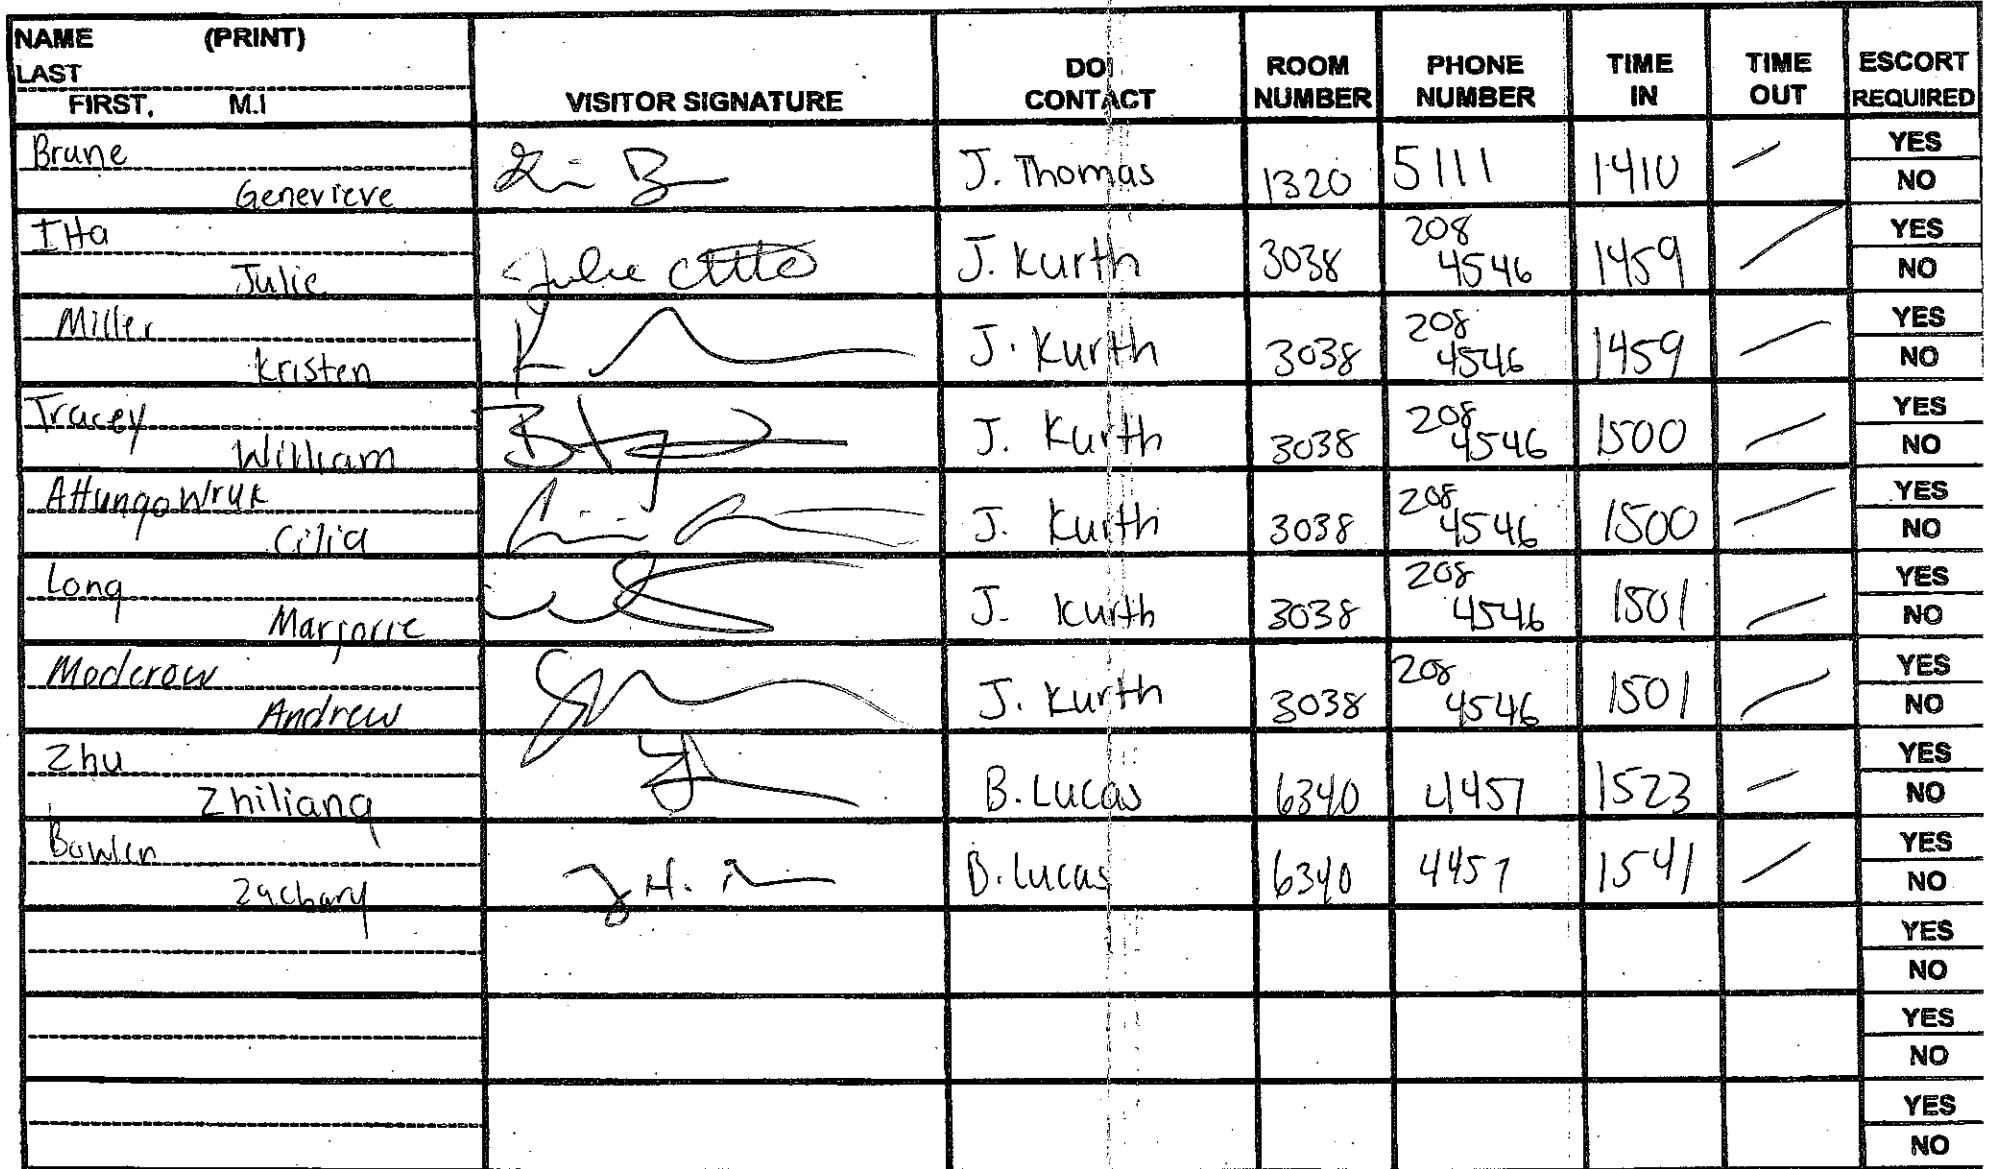 NAME (PRINT)
LAST
FIRST, M.I
VISITOR SIGNATURE
DOI CONTACT
ROOM NUMBER
PHONE NUMBER
TIME IN
TIME OUT
ESCORT REQUIRED
Brune
Genevieve
J. Thomas 1320 5111 1410 YES
NO
Itta
Julie
Julie Itta J. Kurth 3038 208 4546 1459 YES
NO
Miller
Kristen
J. Kurth 3038 208 4546 1459 YES
NO
Tracey
William
J. Kurth 3038 208 4546 1500 YES
NO
Attungowruk
Cilia
J. Kurth 3038 208 4546 1500 YES
NO
Long
Marjorie
J. Kurth 3038 208 4546 1501 YES
NO
Moderow
Andrew
J. Kurth 3038 208 4546 1501 YES
NO
Zhu
Zhiliang
B. Lucas 6340 4457 1523 YES
NO
Bowlen
Zachary
B. Lucas 6340 4457 1541 YES
NO
YES
NO
YES
NO
YES
NO